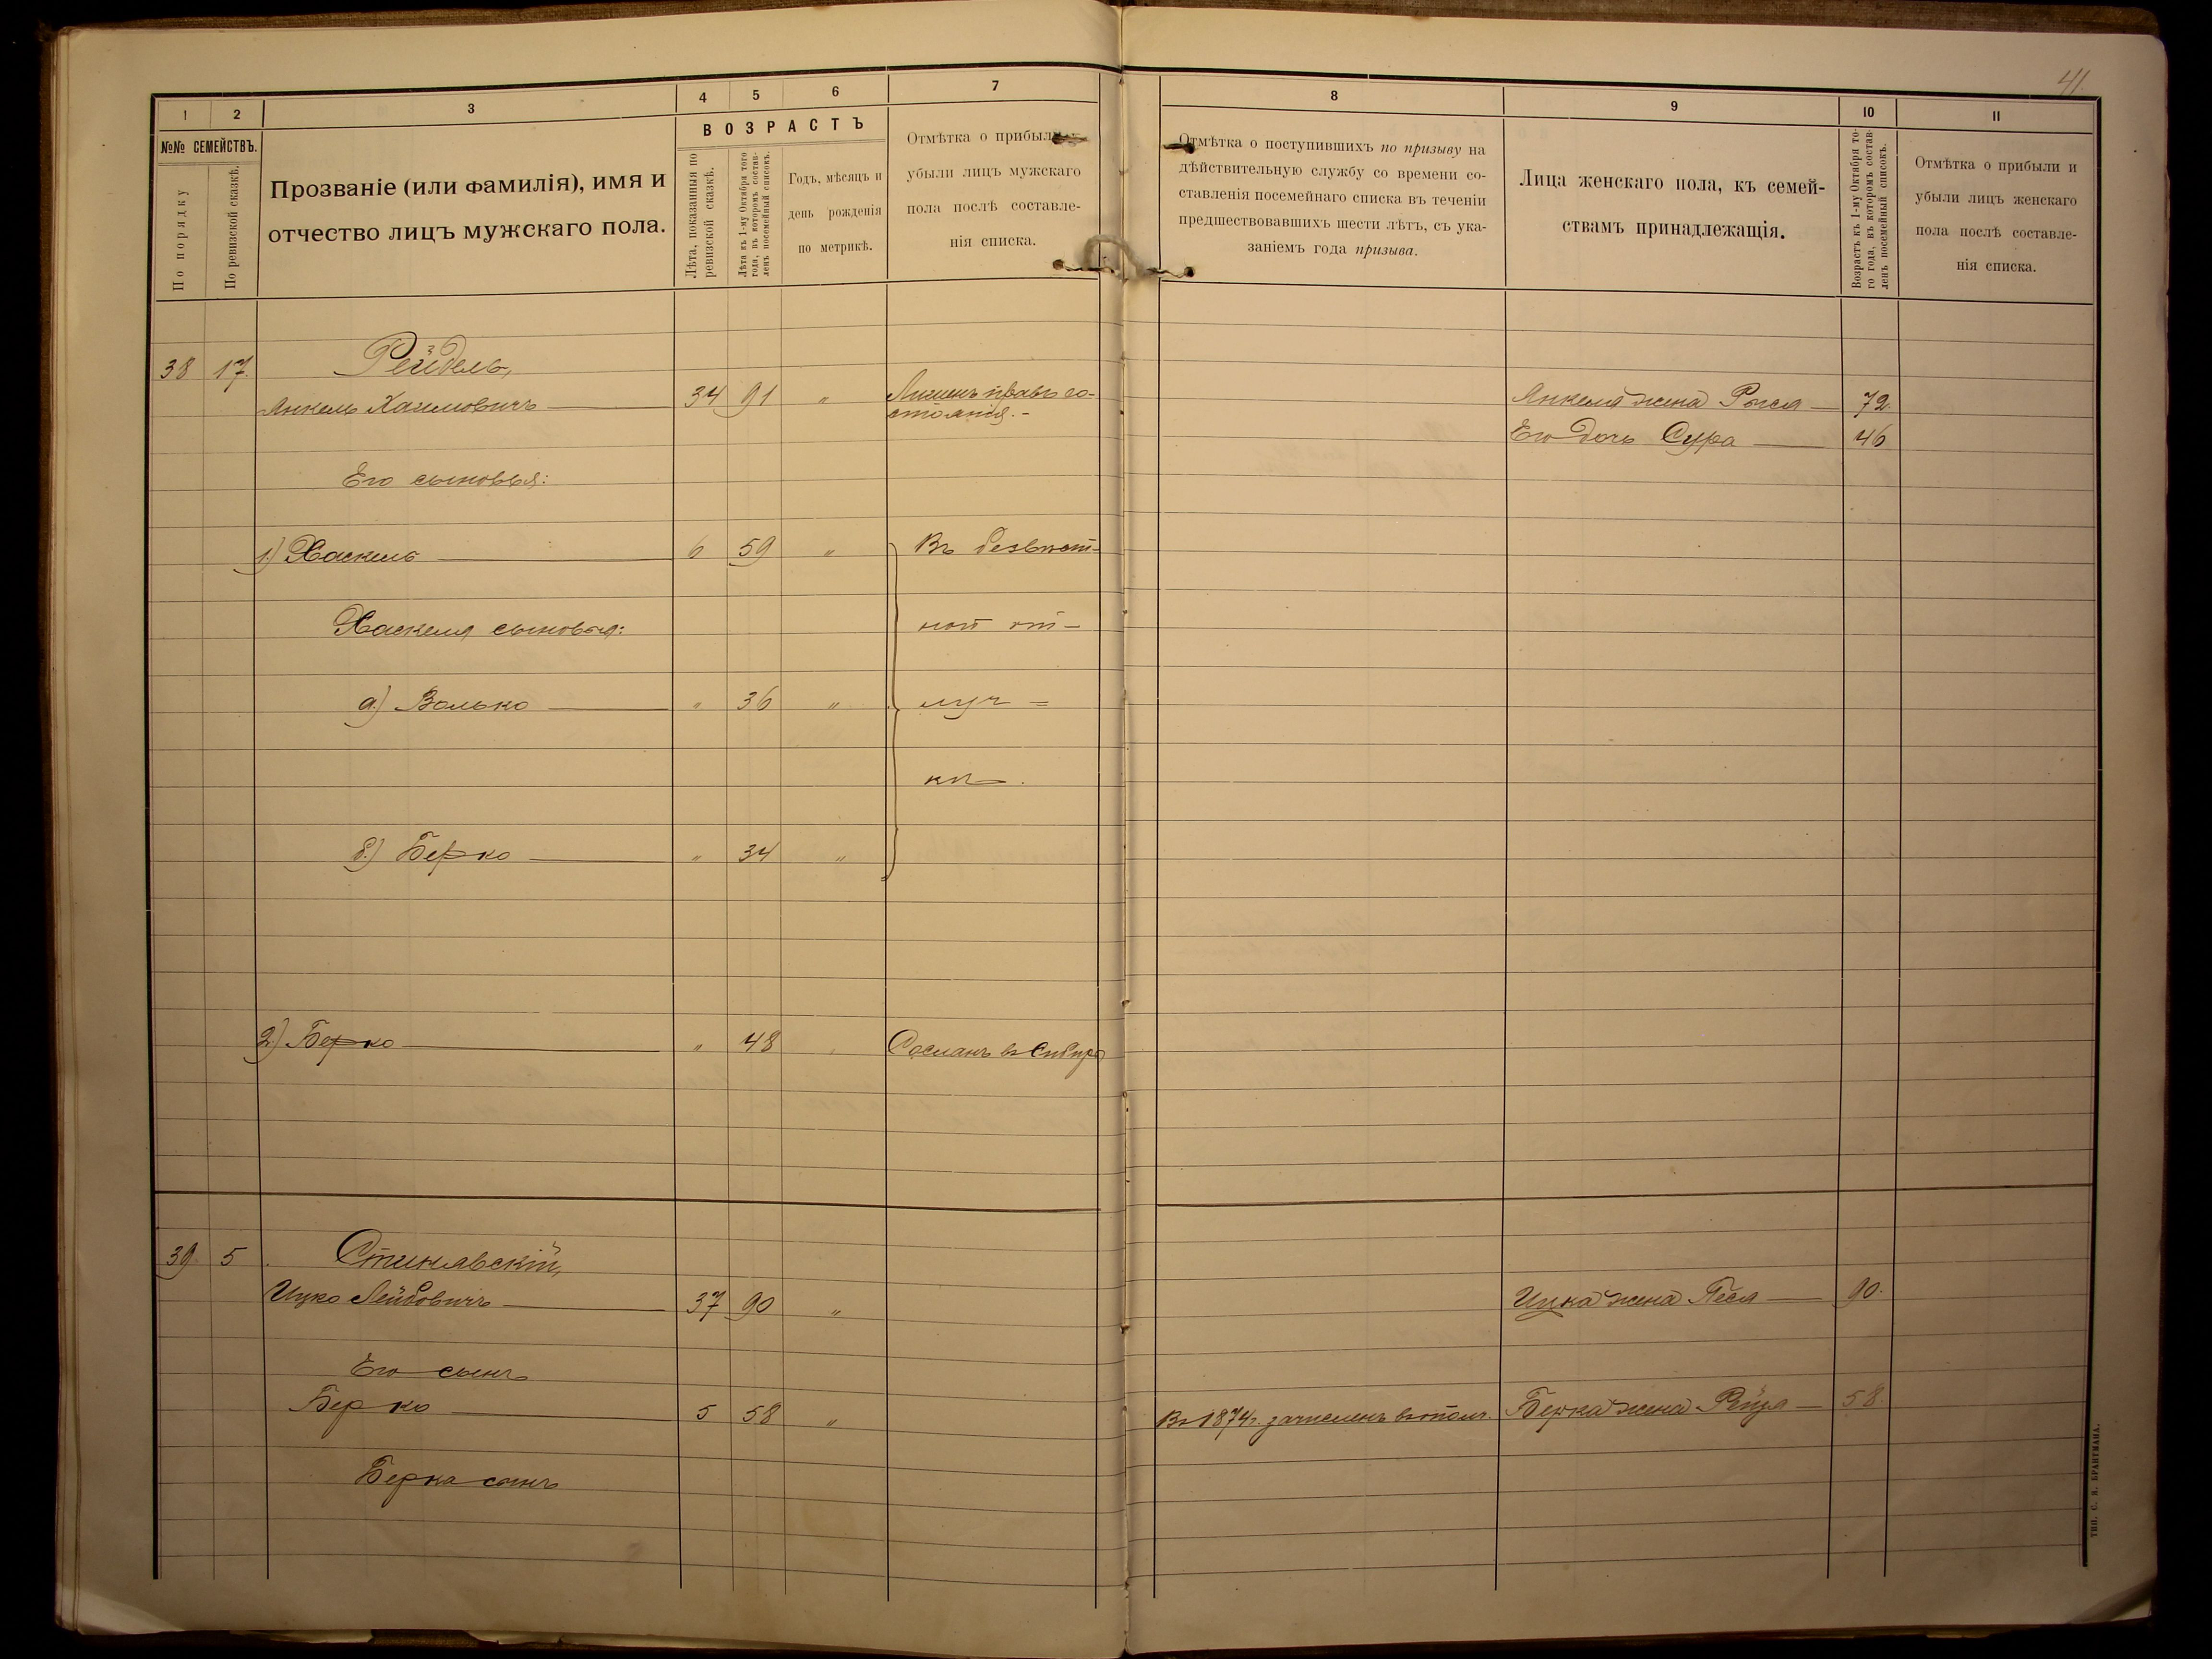 41.
1 2 3 4 5 6 7
№№ СЕМЕЙСТВЪ.
По порядку
По ревизской сказкѣ.
Прозваніе (или фамилія), имя и
отчество лицъ мужскаго пола.
ВОЗРАСТЪ
Лѣта, показанныя по
ревизской сказкѣ.
Лѣта къ 1-му Октября того
года, въ которомъ состав-
ленъ посемейный списокъ.
Годъ, мѣсяцъ и
день рожденія
по метрикѣ.
Отмѣтка о прибыли
убыли лицъ мужскаго
пола послѣ составле-
нія списка.
8 9 10 11
Отмѣтка о поступившихъ по призыву на
дѣйствительную службу со времени со-
ставленія посемейнаго списка въ теченіи
предшествовавшихъ шести лѣтъ, съ ука-
заніемъ года призыва.
Лица женскаго пола, къ семей-
ствамъ принадлежащія.
Возрастъ къ 1-му Октября то-
го года, въ которомъ состав-
ленъ посемейный списокъ.
Отмѣтка о прибыли и
убыли лицъ женскаго
пола послѣ составле-
нія списка.
38 17. Рейдель,
Янкель Хаимовичъ — 34 91 " Лишенъ правъ со-
стоянія.-
Янкеля жена Рыся — 72.
Его дочь Сура — 46
Его сыновья:
1.) Хаскель — 6 59 " Въ безвѣст-
Хаскеля сыновья: ной от-
а.) Волько — " 36 " луч =
кѣ — .
б.) Берко — " 34 "
2.) Берко — " 48 Сосланъ въ Сибирь
39. 5 Стинявскій,
Ицко Лейбовичъ — 37 90 "
Ицка жена Песя — 90.
Его сынъ
Берко — 5 58 "
Въ 1874 г. зачисленъ въ ополч.
Берка жена — 58.
Берка сынъ
ТИП. С. Я. БРАНТМАНА.